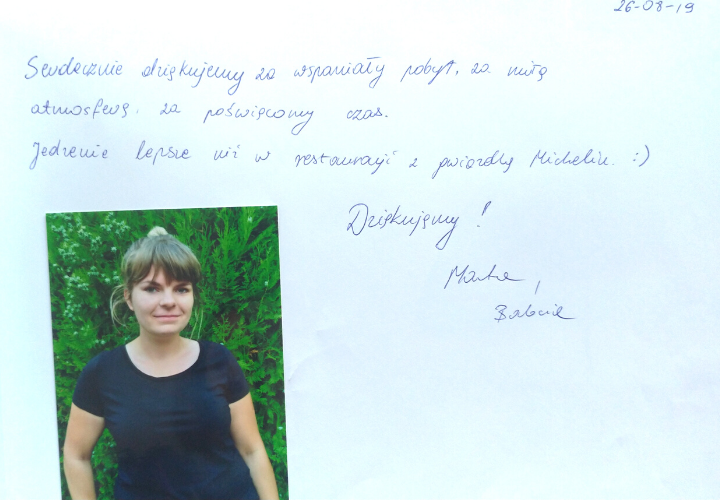 26-08-19
Serdecznie dziękujemy za wspaniały pobyt, za miłą
atmosferę, za poświęcony czas.
Jedzenie lepsze niż w restauracji z gwiazdką Michelin. :)
Dziękujemy!
Marta,
Babcia